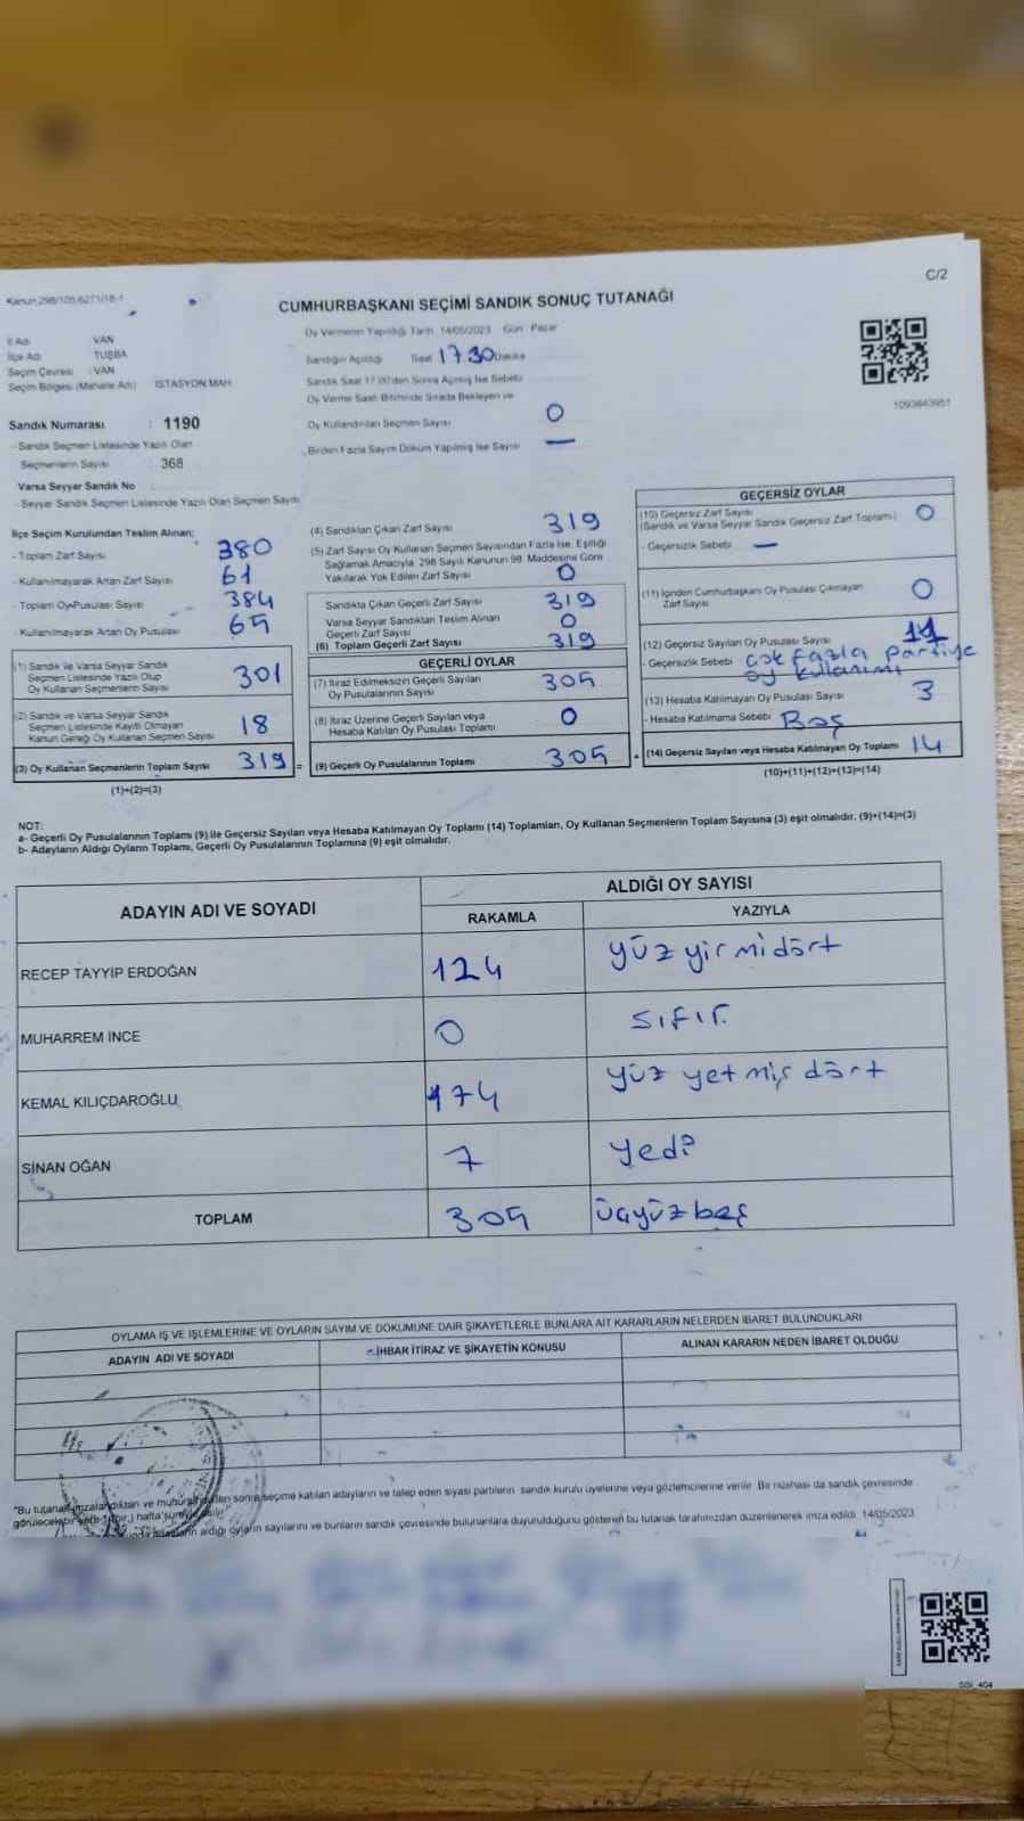 C/2
Kanun 298/105,6271/18-1
CUMHURBAŞKANI SEÇİMİ SANDIK SONUÇ TUTANAĞI
Oy Vermenin Yapıldığı Tarih 14/05/2023 Gün Pazar
İl Adı VAN
İlçe Adı TUŞBA
Seçim Çevresi : VAN
Seçim Bölgesi (Mahalle Adı) İSTASYON MAH
Sandığın Açıldığı Saat 17 30 Dakika
Sandık Saat 17.00'den Sonra Açılmış İse Sebebi
Oy Verme Saati Bitiminde Sırada Bekleyen ve
Oy Kullandırılan Seçmen Sayısı 0
Birden Fazla Sayım Döküm Yapılmış İse Sayısı —
1093843951
Sandık Numarası : 1190
- Sandık Seçmen Listesinde Yazılı Olan
Seçmenlerin Sayısı 368
Varsa Seyyar Sandık No
- Seyyar Sandık Seçmen Listesinde Yazılı Olan Seçmen Sayısı
İlçe Seçim Kurulundan Teslim Alınan;
- Toplam Zarf Sayısı 380
- Kullanılmayarak Artan Zarf Sayısı 61
- Toplam Oy Pusulası Sayısı 384
- Kullanılmayarak Artan Oy Pusulası 65
(1) Sandık ve Varsa Seyyar Sandık
Seçmen Listesinde Yazılı Olup
Oy Kullanan Seçmenlerin Sayısı 301
(2) Sandık ve Varsa Seyyar Sandık
Seçmen Listesinde Kayıtlı Olmayan
Kanun Gereği Oy Kullanan Seçmen Sayısı 18
(3) Oy Kullanan Seçmenlerin Toplam Sayısı 319 =
(1)+(2)=(3)
(4) Sandıktan Çıkan Zarf Sayısı 319
(5) Zarf Sayısı Oy Kullanan Seçmen Sayısından Fazla İse, Eşitliği
Sağlamak Amacıyla, 298 Sayılı Kanunun 98. Maddesine Göre
Yakılarak Yok Edilen Zarf Sayısı 0
Sandıkta Çıkan Geçerli Zarf Sayısı 319
Varsa Seyyar Sandıktan Teslim Alınan
Geçerli Zarf Sayısı 0
(6) Toplam Geçerli Zarf Sayısı 319
GEÇERLİ OYLAR
(7) İtiraz Edilmeksizin Geçerli Sayılan
Oy Pusulalarının Sayısı 305
(8) İtiraz Üzerine Geçerli Sayılan veya
Hesaba Katılan Oy Pusulası Toplamı 0
(9) Geçerli Oy Pusulalarının Toplamı 305 +
GEÇERSİZ OYLAR
(10) Geçersiz Zarf Sayısı
(Sandık ve Varsa Seyyar Sandık Geçersiz Zarf Toplamı) 0
- Geçersizlik Sebebi —
(11) İçinden Cumhurbaşkanı Oy Pusulası Çıkmayan
Zarf Sayısı 0
(12) Geçersiz Sayılan Oy Pusulası Sayısı 11
- Geçersizlik Sebebi çok fazla partiye
oy kullanımı
(13) Hesaba Katılmayan Oy Pusulası Sayısı 3
- Hesaba Katılmama Sebebi Boş
(14) Geçersiz Sayılan veya Hesaba Katılmayan Oy Toplamı 14
(10)+(11)+(12)+(13)=(14)
NOT:
a- Geçerli Oy Pusulalarının Toplamı (9) ile Geçersiz Sayılan veya Hesaba Katılmayan Oy Toplamı (14) Toplamları, Oy Kullanan Seçmenlerin Toplam Sayısına (3) eşit olmalıdır. (9)+(14)=(3)
b- Adayların Aldığı Oyların Toplamı, Geçerli Oy Pusulalarının Toplamına (9) eşit olmalıdır.
ADAYIN ADI VE SOYADI ALDIĞI OY SAYISI
RAKAMLA YAZIYLA
RECEP TAYYİP ERDOĞAN 124 yüz yirmi dört
MUHARREM İNCE 0 sıfır.
KEMAL KILIÇDAROĞLU 174 yüz yetmiş dört
SİNAN OĞAN 7 yedi
TOPLAM 305 üçyüzbeş
OYLAMA İŞ VE İŞLEMLERİNE VE OYLARIN SAYIM VE DÖKÜMÜNE DAİR ŞİKAYETLERLE BUNLARA AİT KARARLARIN NELERDEN İBARET BULUNDUKLARI
ADAYIN ADI VE SOYADI İHBAR İTİRAZ VE ŞİKAYETİN KONUSU ALINAN KARARIN NEDEN İBARET OLDUĞU
"Bu tutanak imzalandıktan ve mühürlendikten sonra seçime katılan adayların ve talep eden siyasi partilerin sandık kurulu üyelerine veya gözlemcilerine verilir. Bir nüshası da sandık çevresinde
görülecek bir yerde 1 (bir) hafta süreyle
aldığı oyların sayılarını ve bunların sandık çevresinde bulunanlara duyurulduğunu gösteren bu tutanak tarafımızdan düzenlenerek imza edildi. 14/05/2023